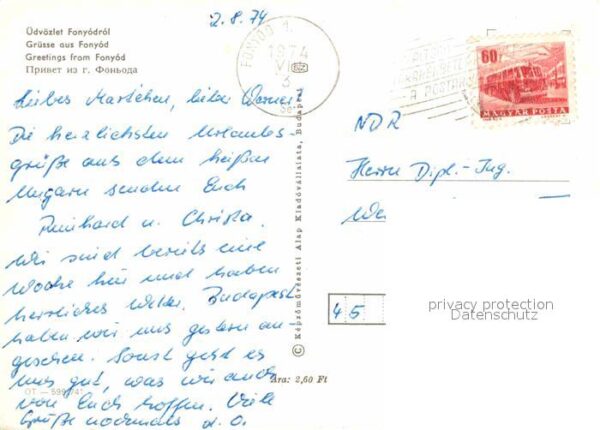 2.8.74
Üdvözlet Fonyódról
Grüsse aus Fonyód
Greetings from Fonyód
Привет из г. Фоньода
Liebes Martchen, lieber Werner!
Die herzlichsten Urlaubs-
grüße aus dem heißen
Ungarn senden Euch
Reinhard u. Christa.
Wir sind bereits eine
Woche hier und haben
herrliches Wetter. Budapest
haben wir uns gestern an-
gesehen. Sonst geht es
uns gut, was wir auch
von Euch hoffen. Viele
Grüße nochmals d. O.
OT — 599/741
Ára: 2,60 Ft
© Képzőművészeti Alap Kiadóvállalata, Budapest
FONYÓD 1.
1974
VIII
3
60f
MAGYAR POSTA
A POSTÁN
NDR
Herrn Dipl.-Ing.
We
45
privacy protection
Datenschutz